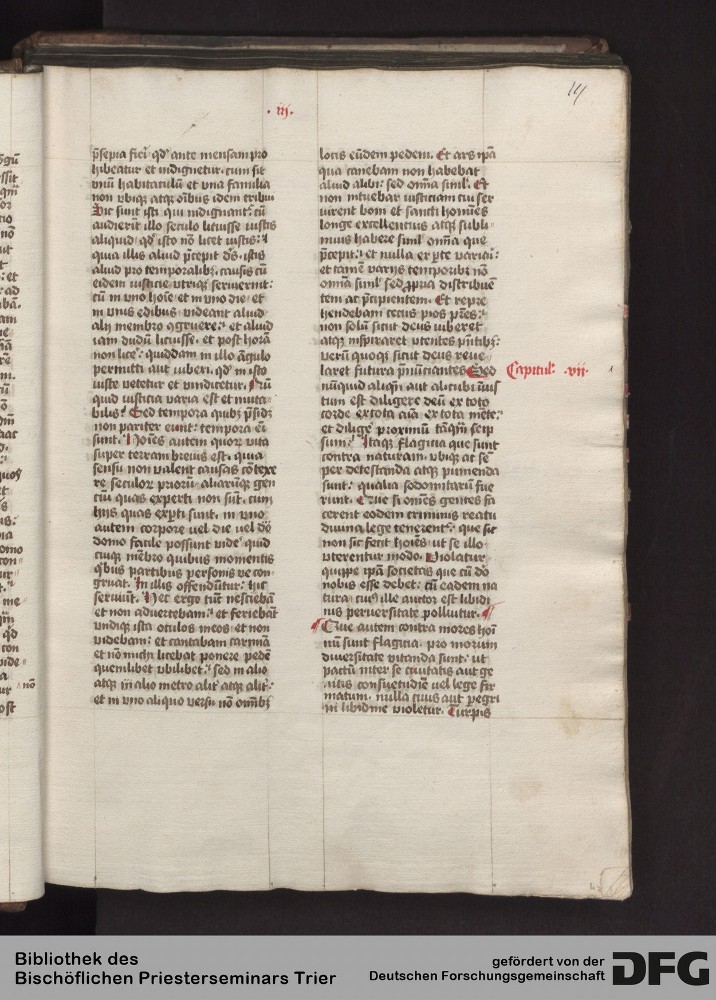 · iij ·
14
p̄sepia fieri qd̓ ante mensam pro
hibeatur et indignetur cum sit
vnū habitaculū et vna familia
non vbiqꝫ atqꝫ oībus idem tribui
Sic sunt isti qui indignant᷑ cū
audierīt illo seculo licuisse iustis
aliquid qd̓ isto nō licet iustis: ⁊
quia illis aliud p̄cepit dn̄s istis
aliud pro temporalibꝫ causis cū
eidem iusticie vtriqꝫ seruierint:
cū in vno hoīe et in vno die et
in vnis edibus videant aliud
alij membro ꝯgruere: et aliud
iam dudū licuisse et post horā
non lice᷑ quiddam in illo āgulo
permitti aut iuberi qd̓ in isto
iuste vetetur et vindicetur. Nū
quid iusticia varia est et muta
bilis? Sed tempora quibꝫ p̄sidꝫ
non pariter eunt: tempora em̄
sunt. Hoīes autem quoꝝ vita
super terram breuis est quia
sensu non valent causas cōtexe
re seculoꝝ prioꝝ aliarūqꝫ gen
ciū quas experti non sūt cum
hijs quas exp̄ti sunt in vno
autem corpore uel die uel do̅
domo facile possunt vide᷑ quid
cuiqꝫ mēbro quibus momentis
q̓bus partibus personis ve con
gruat. In illis offendūtur hic
seruiūt. Hec ergo tūc nesciebā
et non aduertebam: et feriebāt
vndiqꝫ ista oculos meos et non
videbam: et cantabam carmīa
et nō michi licebat ponere pedē
quemlibet vbilibet: sed in alio
atqꝫ in alio metro alit᷑ atqꝫ alit᷑:
et in vno aliquo versu nō oībꝫ
locis eūdem pedem. Et ars ip̄a
qua canebam non habebat
aliud alibi: sed om̄ia simul. Et
non intuebar iusticiam cui ser
uirent boni et sancti homīes
longe excellentius atqꝫ subli
mius habere simul om̄ia que
p̄cepit: et nulla ex p̄te variai᷑:
et tamē varijs temporibꝫ nō
om̄ia simul sed ꝓpria distribuē
tem ac p̄cipientem. Et repre
hendebam cecus pios pr̄es:
non solū sicut deus iuberet
atqꝫ inspiraret vtentes p̄ntibꝫ:
verū quoqꝫ sicut deus reue
laret futura p̄nūciantes Sed
Capitul᷑ · vij ·
nūquid aliqn̄ aut alicubi īius
tum est diligere deū ex toto
corde ex tota aīa ex tota mēte:
et dilige᷑ proximū tāqm̄ seip
sum? Itaqꝫ flagicia que sunt
contra naturam vbiqꝫ ac se
per detestanda atqꝫ punienda
sunt: qualia sodomitarū fue
runt. Que si om̄es gentes fa
cerent eodem criminis reatu
diuina lege tenerent᷑: que sic
non sic fecit hoīes vt se illo
vterentur modo. Violatur
quippe ip̄a societas que cū do̅
nobis esse debet: cū eadem na
tura cuiꝰ ille auctor est libidi
nis peruersitate polluitur. ¶
¶ Que autem contra mores hoī
nū sunt flagicia pro morum
diuersitate vitanda sunt: ut
pactū inter se ciuitatis aut ge
ntis consuetudīe uel lege fir
matum nulla ciuis aut p̱egri
ni libidine violetur. Turpis
Bibliothek des
Bischöflichen Priesterseminars Trier
gefördert von der
Deutschen Forschungsgemeinschaft
DFG